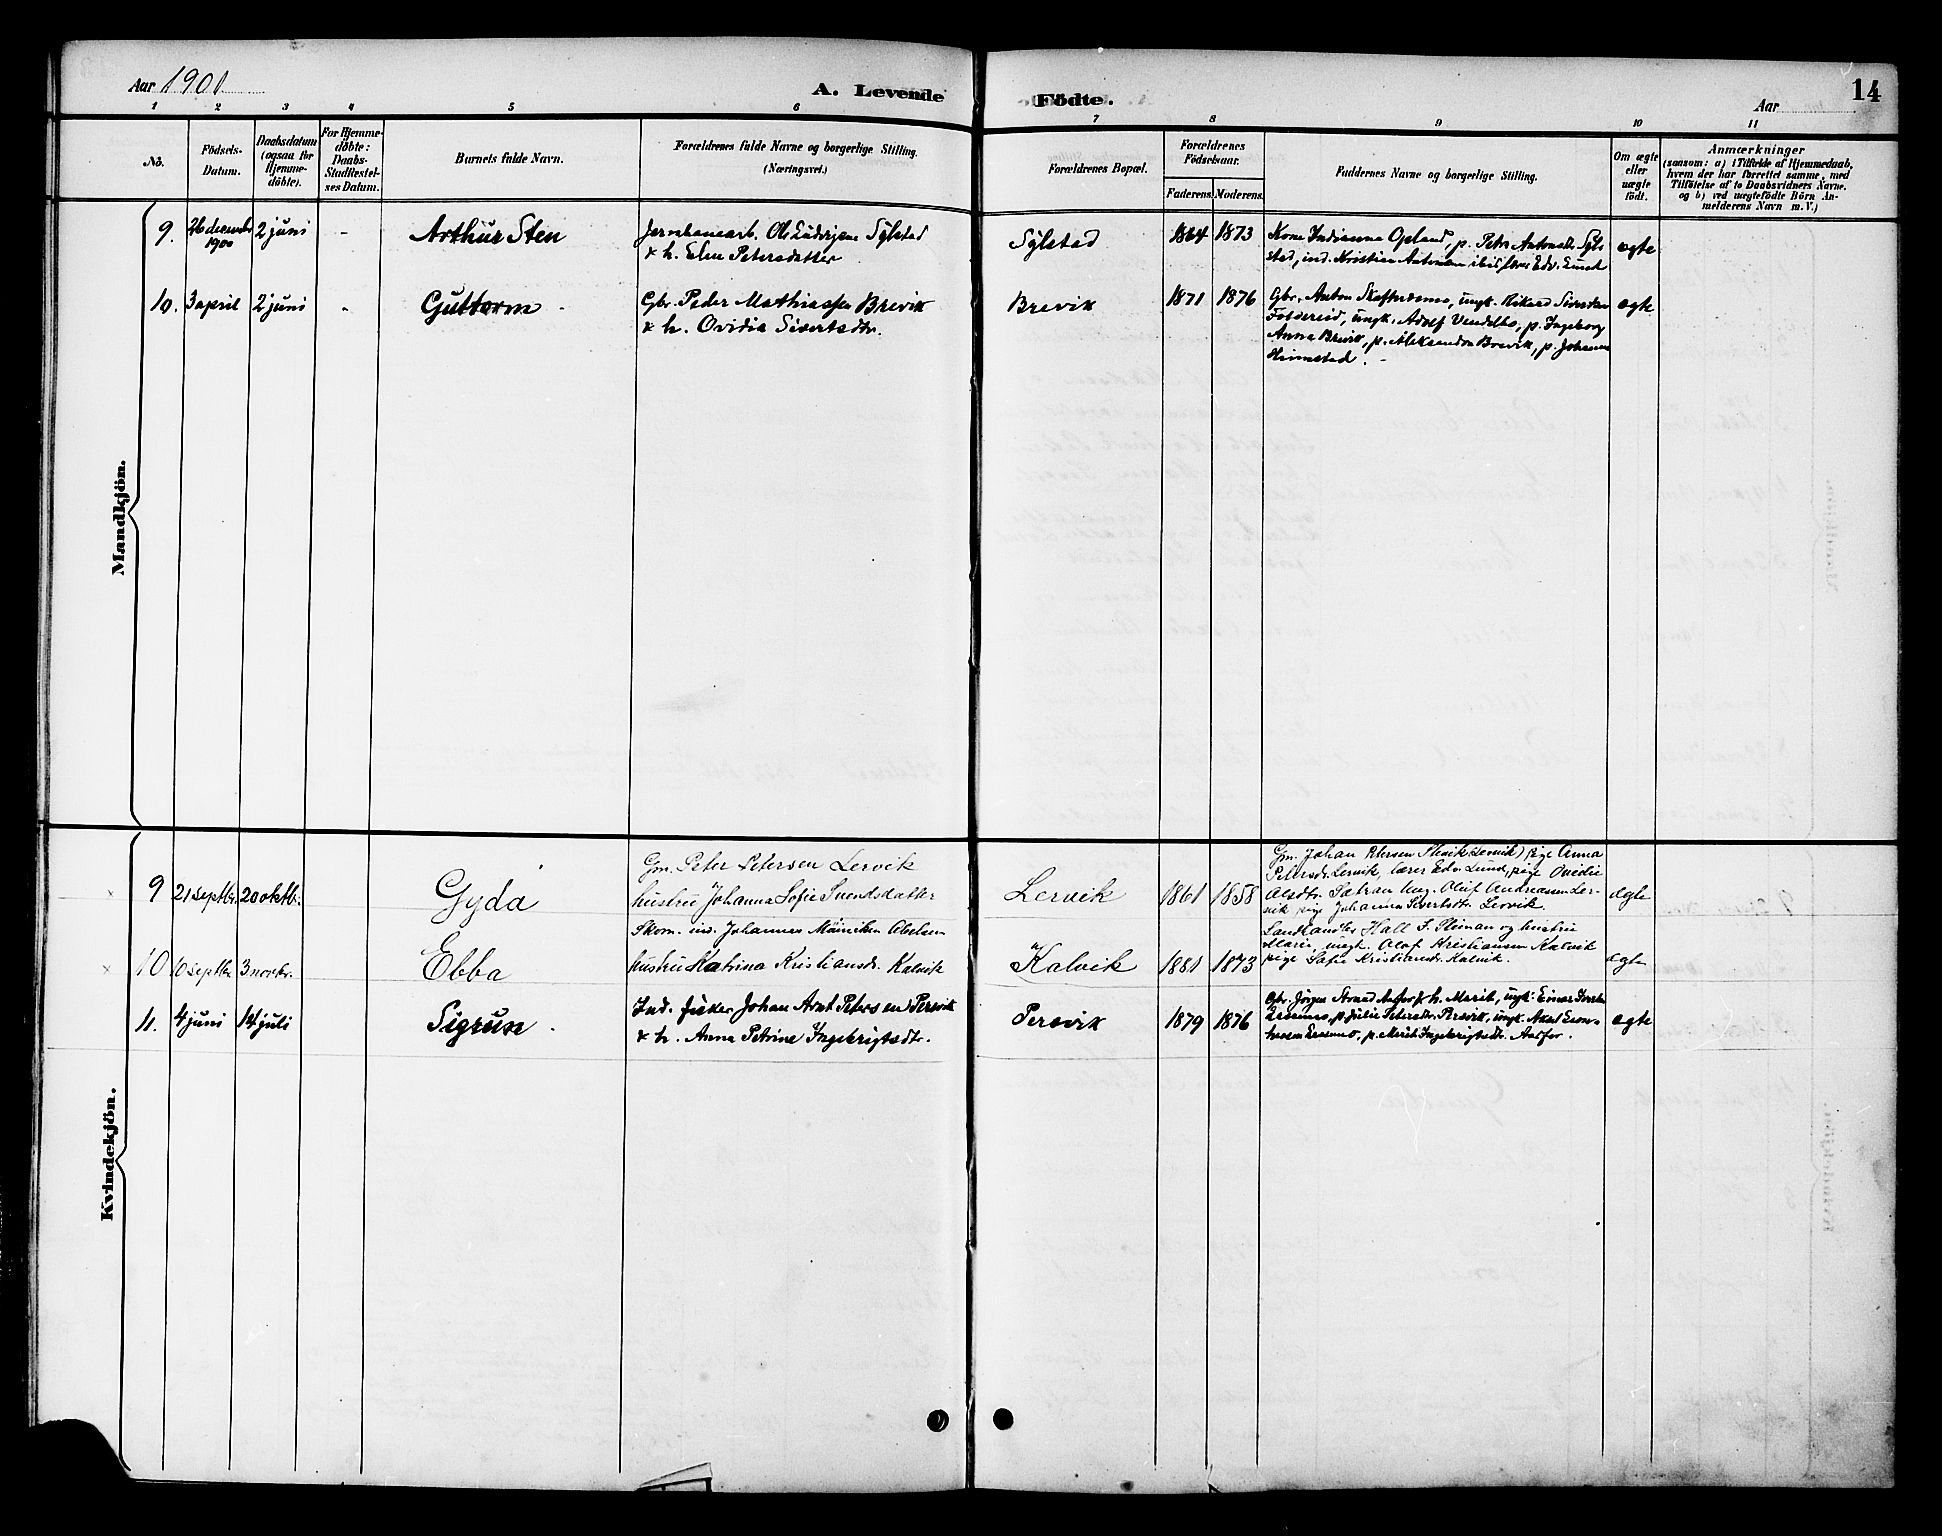 Aar 1901
A. Levende Födte.
Aar
14
1 2 3 4 5 6 7 8 9 10 11
No.
Födsels-
Datum.
Daabsdatum
(ogsaa for
Hjemme-
döbte).
For Hjemme-
döbte:
Daabs-
Stadfæstel-
ses Datum.
Barnets fulde Navn.
Forældrenes fulde Navne og borgerlige Stilling.
(Næringsvei.)
Forældrenes Bopæl.
Forældrenes
Födselsaar.
Faderens. Moderens.
Faddernes Navne og borgerlige Stilling.
Om ægte
eller
uægte
födt.
Anmærkninger
(saasom: a) i Tilfælde af Hjemmedaab,
hvem der har forrettet samme, med
Tilföielse af to Daabsvidners Navne.
og b) ved uægtefödte Börn An-
melderens Navn m. V.)
Mandkjön.
9.
26 decembr
1900
2 juni
-
Arthur Sten
Jernbanearb. Ole Ludvigsen Sylstad
& h. Elen Petersdatter
Sylstad
1864 1873
Kone Indianna Opland, p. Petra Antonsdtr. Syl-
stad, ind. Kristian Antonsen ibid, lærer Edv. Lund
ægte
10. 3 april 2 juni -
Guttorm
Gbr. Peder Mathiassen Brevik
& h. Ovidia Sivertsdtr.
Brevik
1871 1876
Gbr. Anton Skofterdemo, ungk. Rikard Sivertsen
Foldereid, ungk. Adolf Vendelbo, p. Ingeborg
Anna Brevik, p. Aleksandra Brevik, p. Johanna
Himstad.
ægte
Kvindekjön.
9 21 septbr. 20 oktbr.
Gyda
Gm. Peter Petersen Lervik
hustru Johanna Sofie Svendsdatter
Lervik
1861 1858
Gm. Johan Petersen (Lervik) pige Anna
Petersdr. Lervik, lærer Edv. Lund, pige Ovidie
Olsdtr. Sætran ung. Oluf Andreasen Ler-
vik pige Johanna Sivertsdtr. Lervik.
ægte
10 10 septbr 3 novbr.
Ebba
Skom. ind. Johannes Abelsen
hustru Katrina Kristiansdr. Kalvik
Kalvik
1881 1873
Landhandler Hall S. Fleiman og hustru
Marie, ungk. Olaf Kristiansen Kalvik
pige Sofie Kristiansdr. Kalvik.
ægte
11. 4 juni 14 juli
Sigrun.
Ind. fisker Johan Arnt Petersen Persvik
& h. Anna Petrine Ingebrigtsdtr.
Persvik
1879 1876
Gbr. Jörgen Strand Aasfor & h. Marit, ungk. Einar
p. Julie Petersdtr. Persvik, ungk. Aksel
p. Merit Ingebrigtsdtr. Aasfor.
ægte